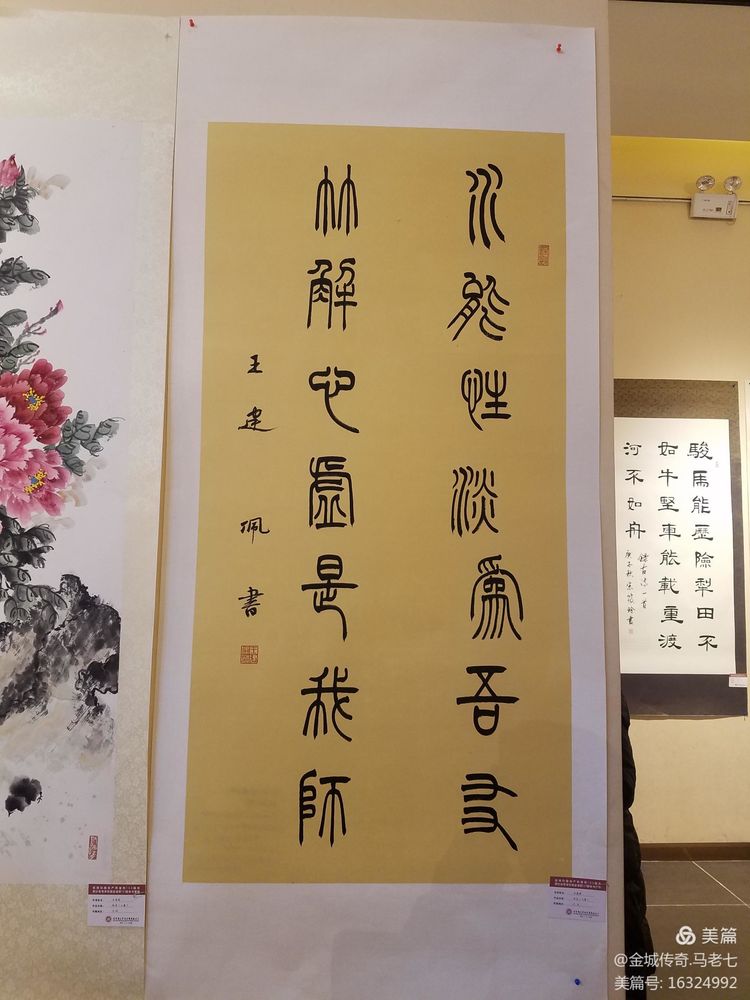 水能性淡為吾友
竹解心虛是我師
王建珮書
駿馬能歷險犁田不
如牛堅車能載重渡
河不如舟
錄古詩一首
美篇
@金城传奇.马老七
美篇号: 16324992